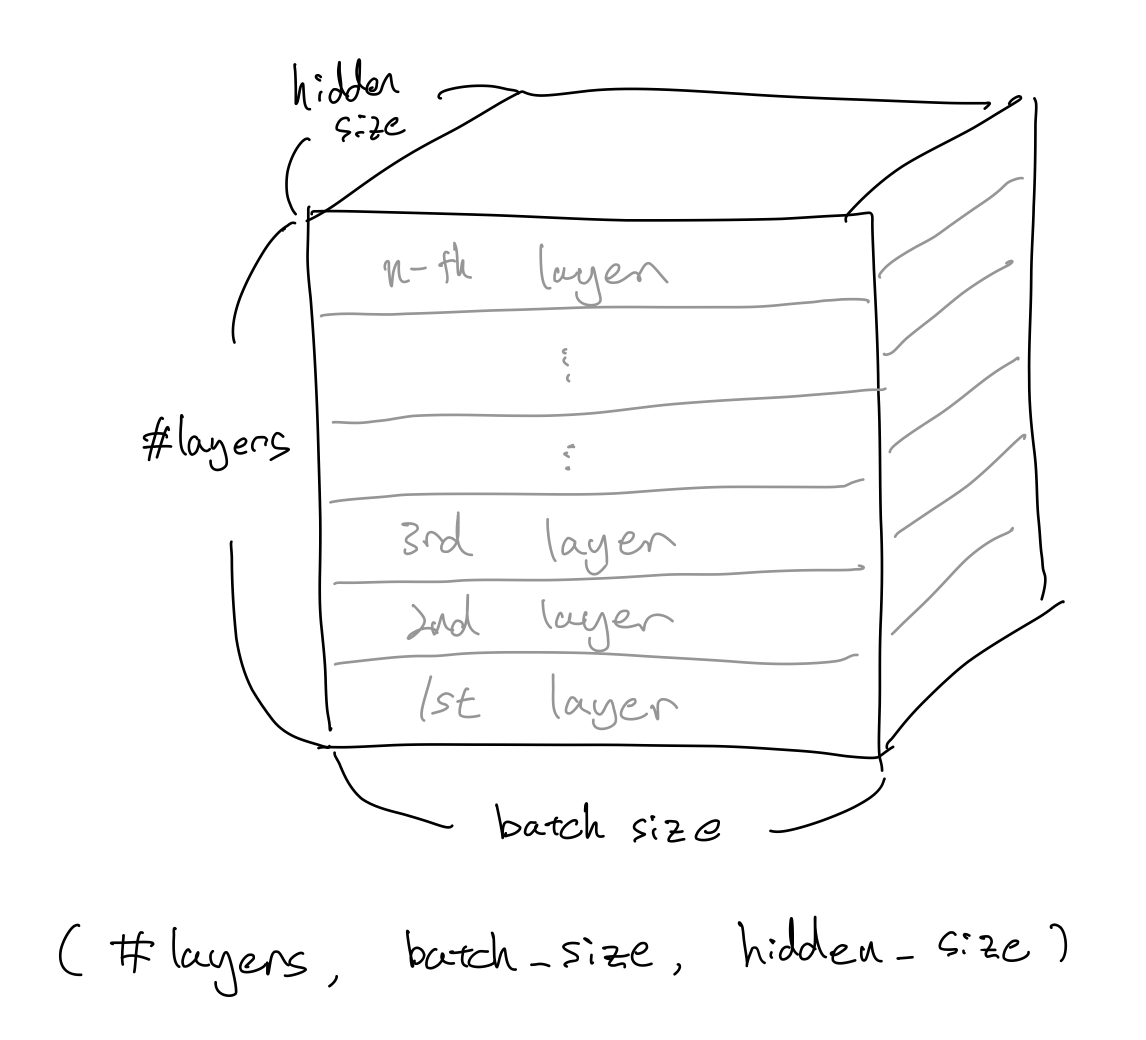 hidden
size
n-th layer
⋮
#layers
⋮
3rd layer
2nd layer
1st layer
batch size
(#layers, batch_size, hidden_size)